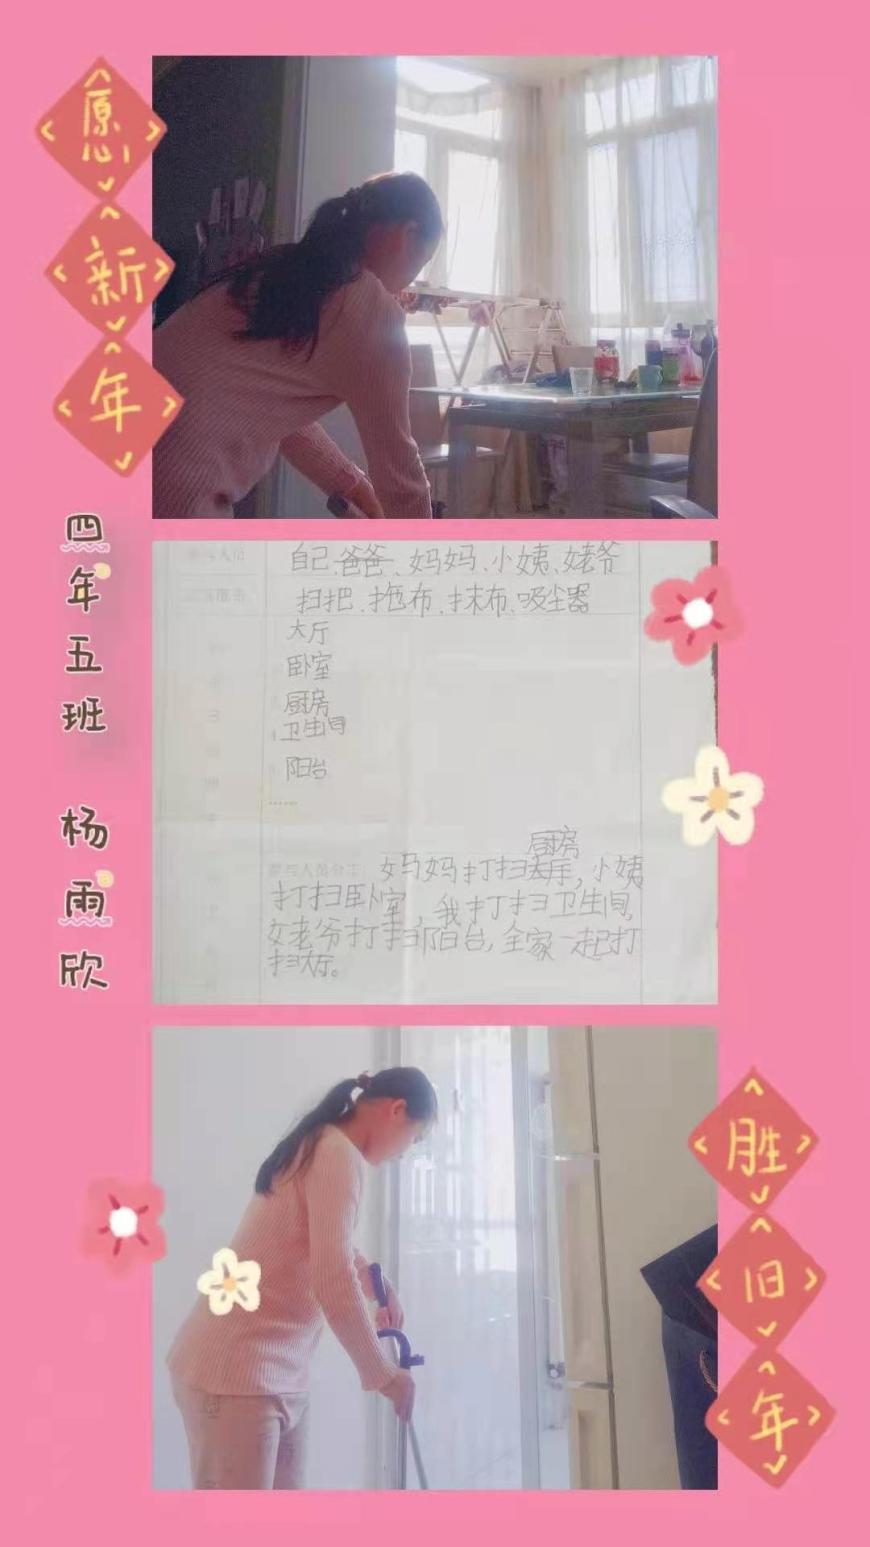 愿新年
四年五班 杨雨欣
自己、爸爸、妈妈、小姨、姥爷
扫把、拖布、抹布、吸尘器
大厅
卧室
厨房
卫生间
阳台
......
厨房
参与人员分工 妈妈打扫大厅,小姨
打扫卧室,我打扫卫生间,
姥爷打扫阳台,全家一起打
扫大厅。
胜旧年